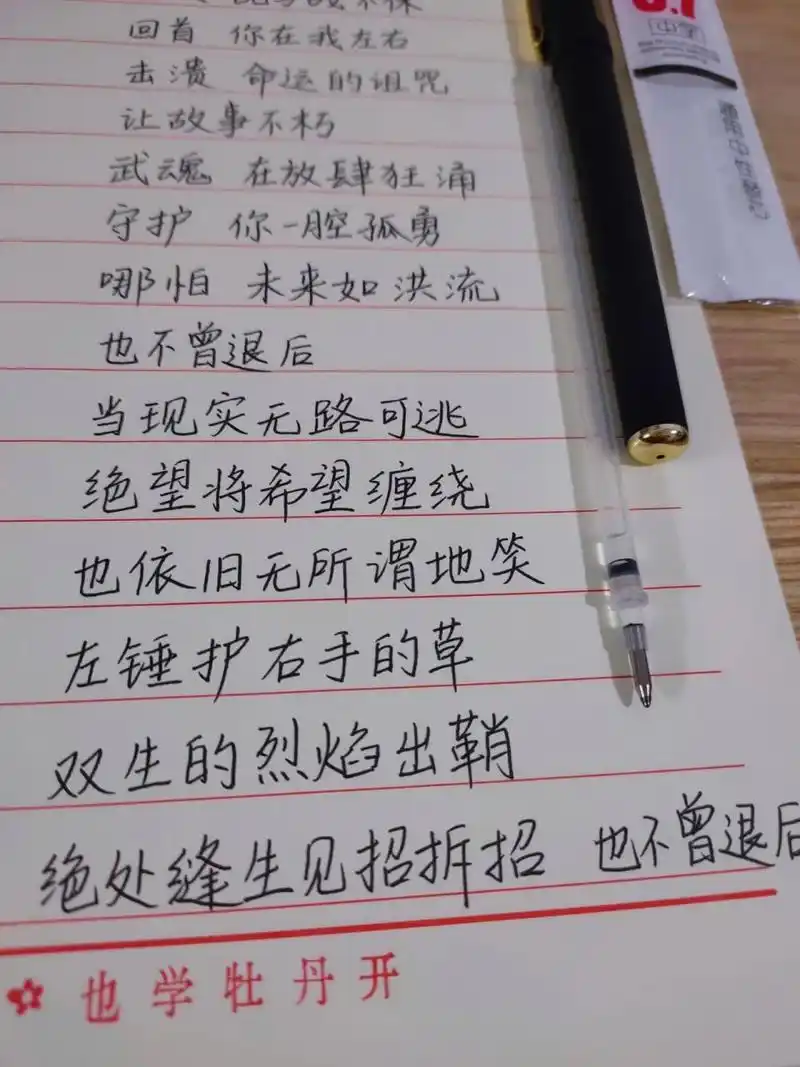 回首 你在我左右
击溃 命运的诅咒
让故事不朽
武魂 在放肆狂涌
守护 你一腔孤勇
哪怕 未来如洪流
也不曾退后
当现实无路可逃
绝望将希望缠绕
也依旧无所谓地笑
左锤护右手的草
双生的烈焰出鞘
绝处缝生见招拆招 也不曾退后
也学牡丹开